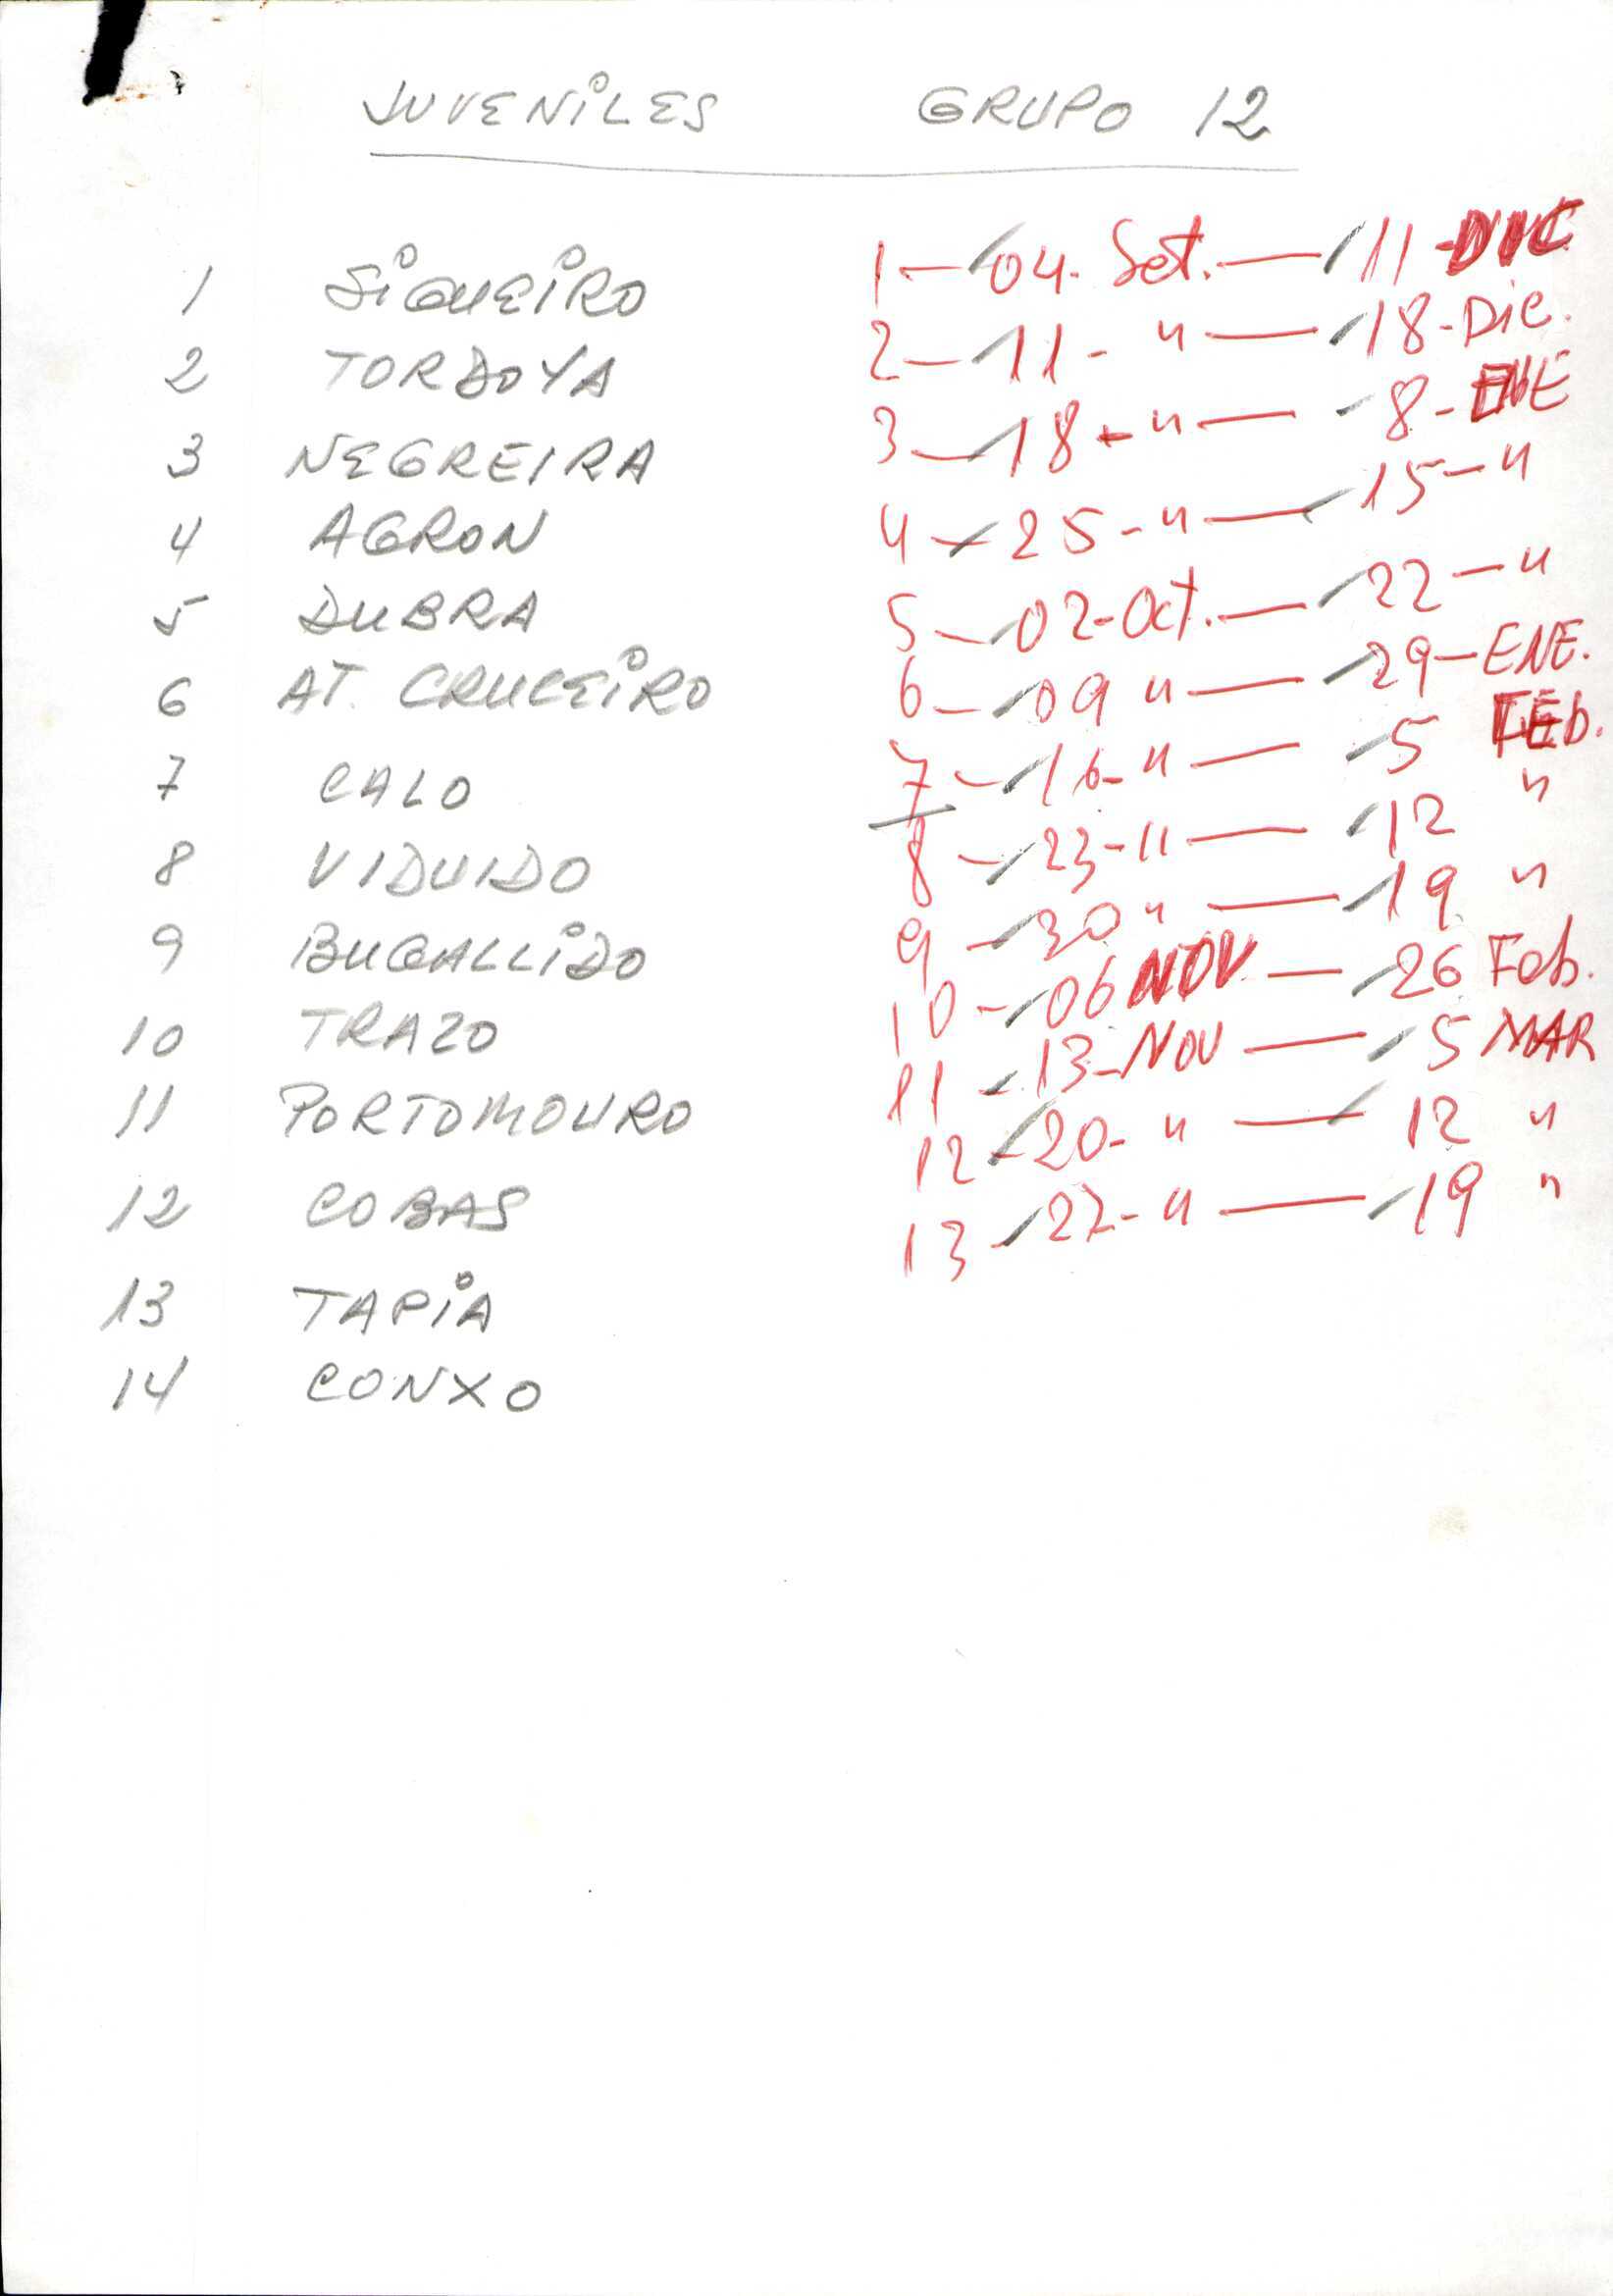 JUVENILES GRUPO 12
1 SIGUEIRO
2 TORDOYA
3 NEGREIRA
4 AGRON
5 DUBRA
6 AT. CRUCEIRO
7 CALO
8 VIDUIDO
9 BUGALLIDO
10 TRAZO
11 PORTOMOURO
12 COBAS
13 TAPIA
14 CONXO
1 - 04 - Set. - 11 - DIC
2 - 11 - " - 18 - Dic.
3 - 18 - " - 8 - ENE
4 - 25 - " - 15 - "
5 - 02 - Oct. - 22 - "
6 - 09 " - 29 - ENE.
7 - 16 - " - 5 FEb.
8 - 23 - " - 12 "
9 - 30 " - 19 "
10 - 06 NOV - 26 Feb.
11 - 13 - NOV - 5 MAR
12 - 20 - " - 12 "
13 - 27 - " - 19 "